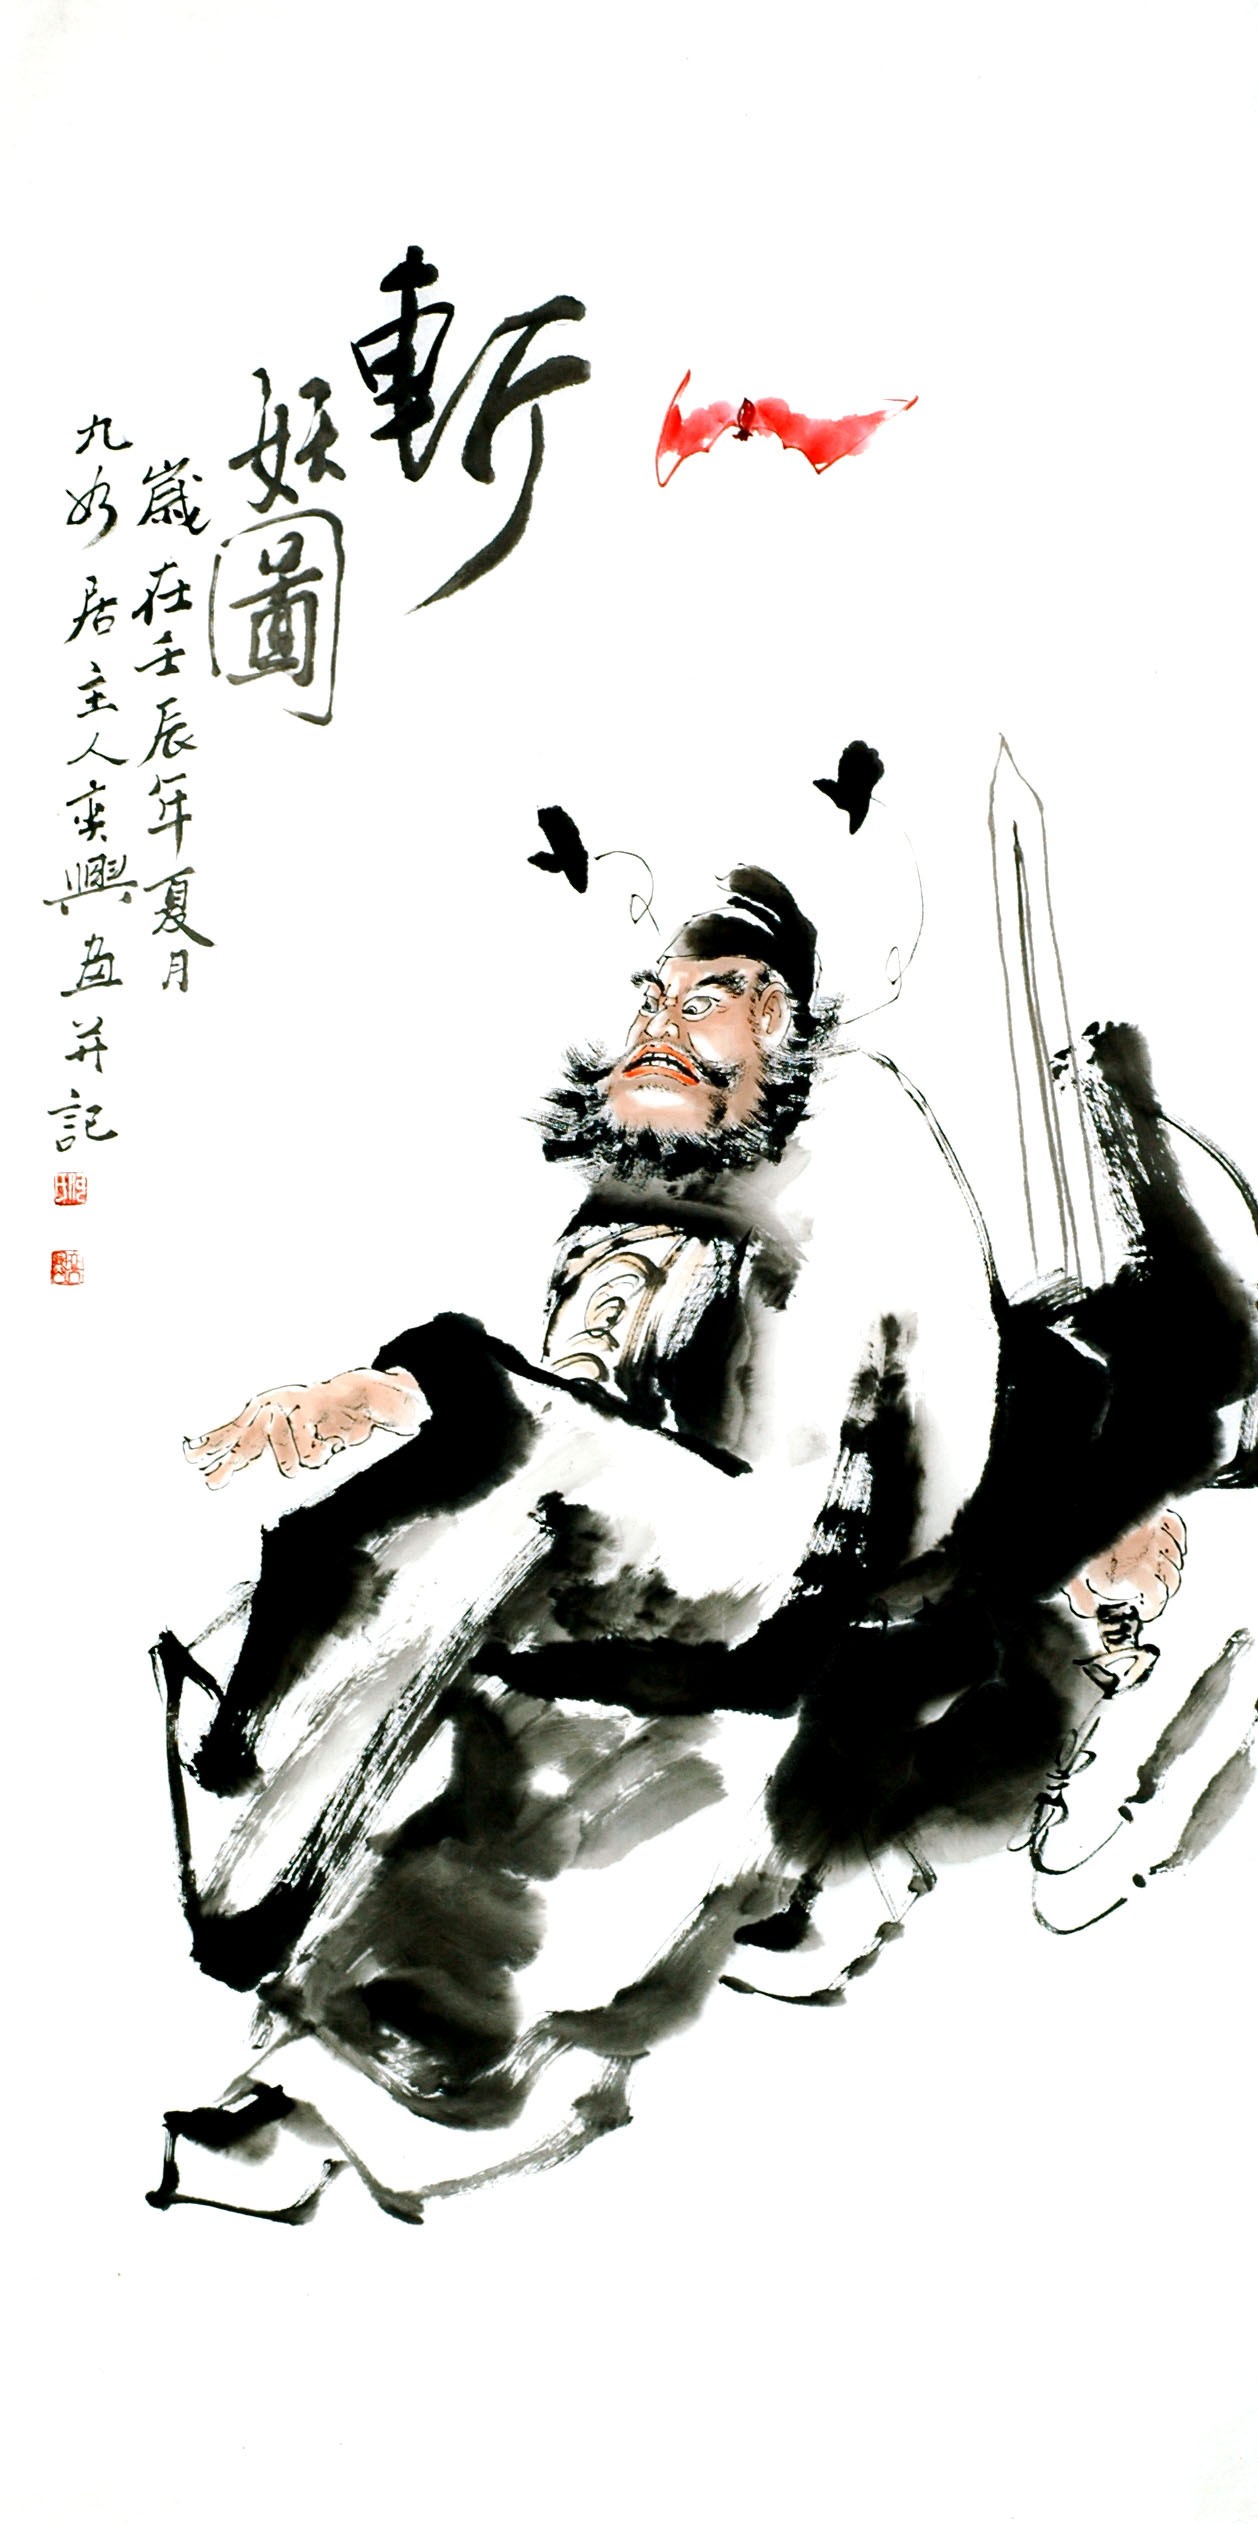 斬
妖圖
歲在壬辰年夏月
九如居主人奕興畫并記